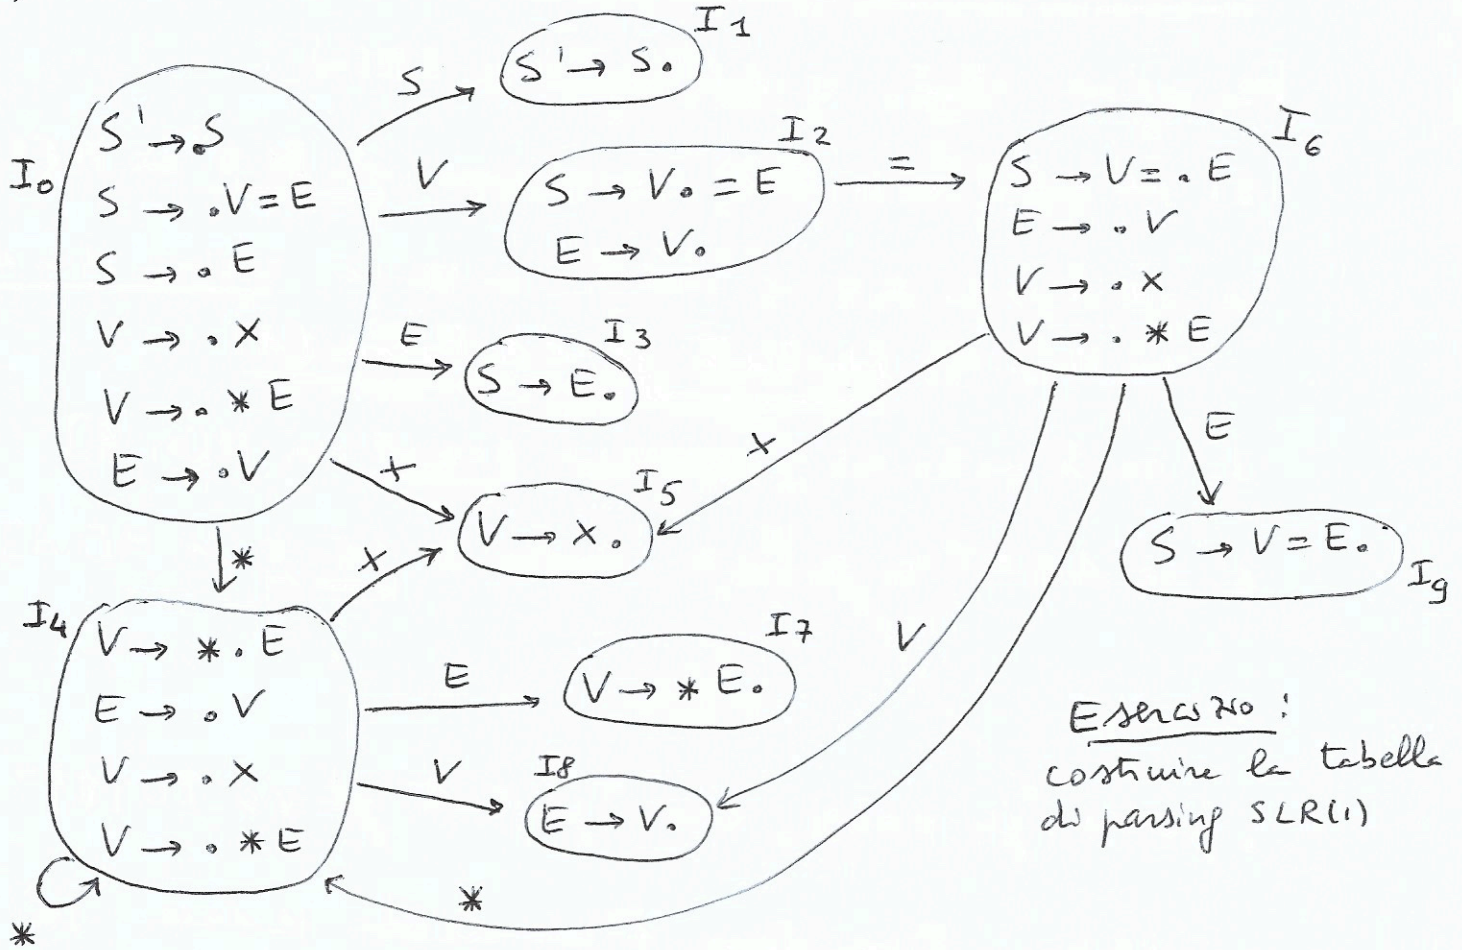 I0
S' → .S
S → .V=E
S → .E
V → .x
V → .*E
E → .V
S
I1
S' → S.
V
I2
S → V.=E
E → V.
=
I6
S → V=.E
E → .V
V → .x
V → .*E
E
I3
S → E.
x
I5
V → x.
x
x
E
S → V=E.
I9
*
I4
V → *.E
E → .V
V → .x
V → .*E
E
I7
V → *E.
V
I8
E → V.
V
*
*
Esercizio:
costruire la tabella
di parsing SLR(1)